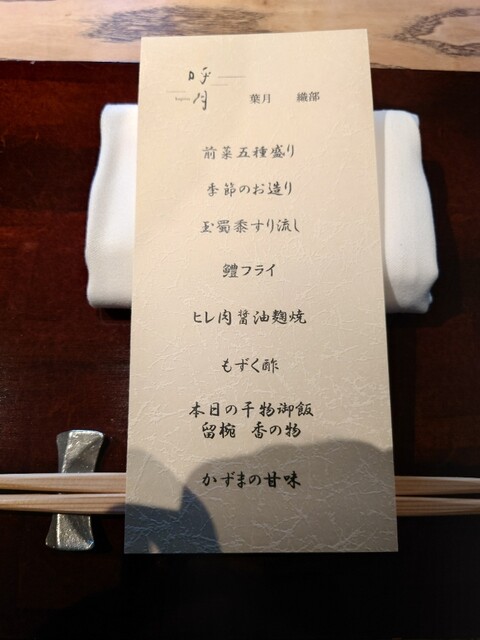 呼月
葉月 織部
前菜五種盛り
季節のお造り
玉蜀黍すり流し
鱧フライ
ヒレ肉醤油麹焼
もずく酢
本日の干物御飯
留椀 香の物
かずまの甘味